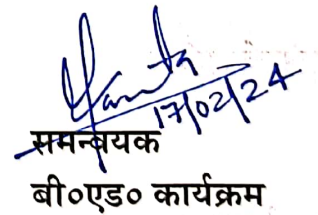 17/02/24
समन्वयक
बी०एड० कार्यक्रम